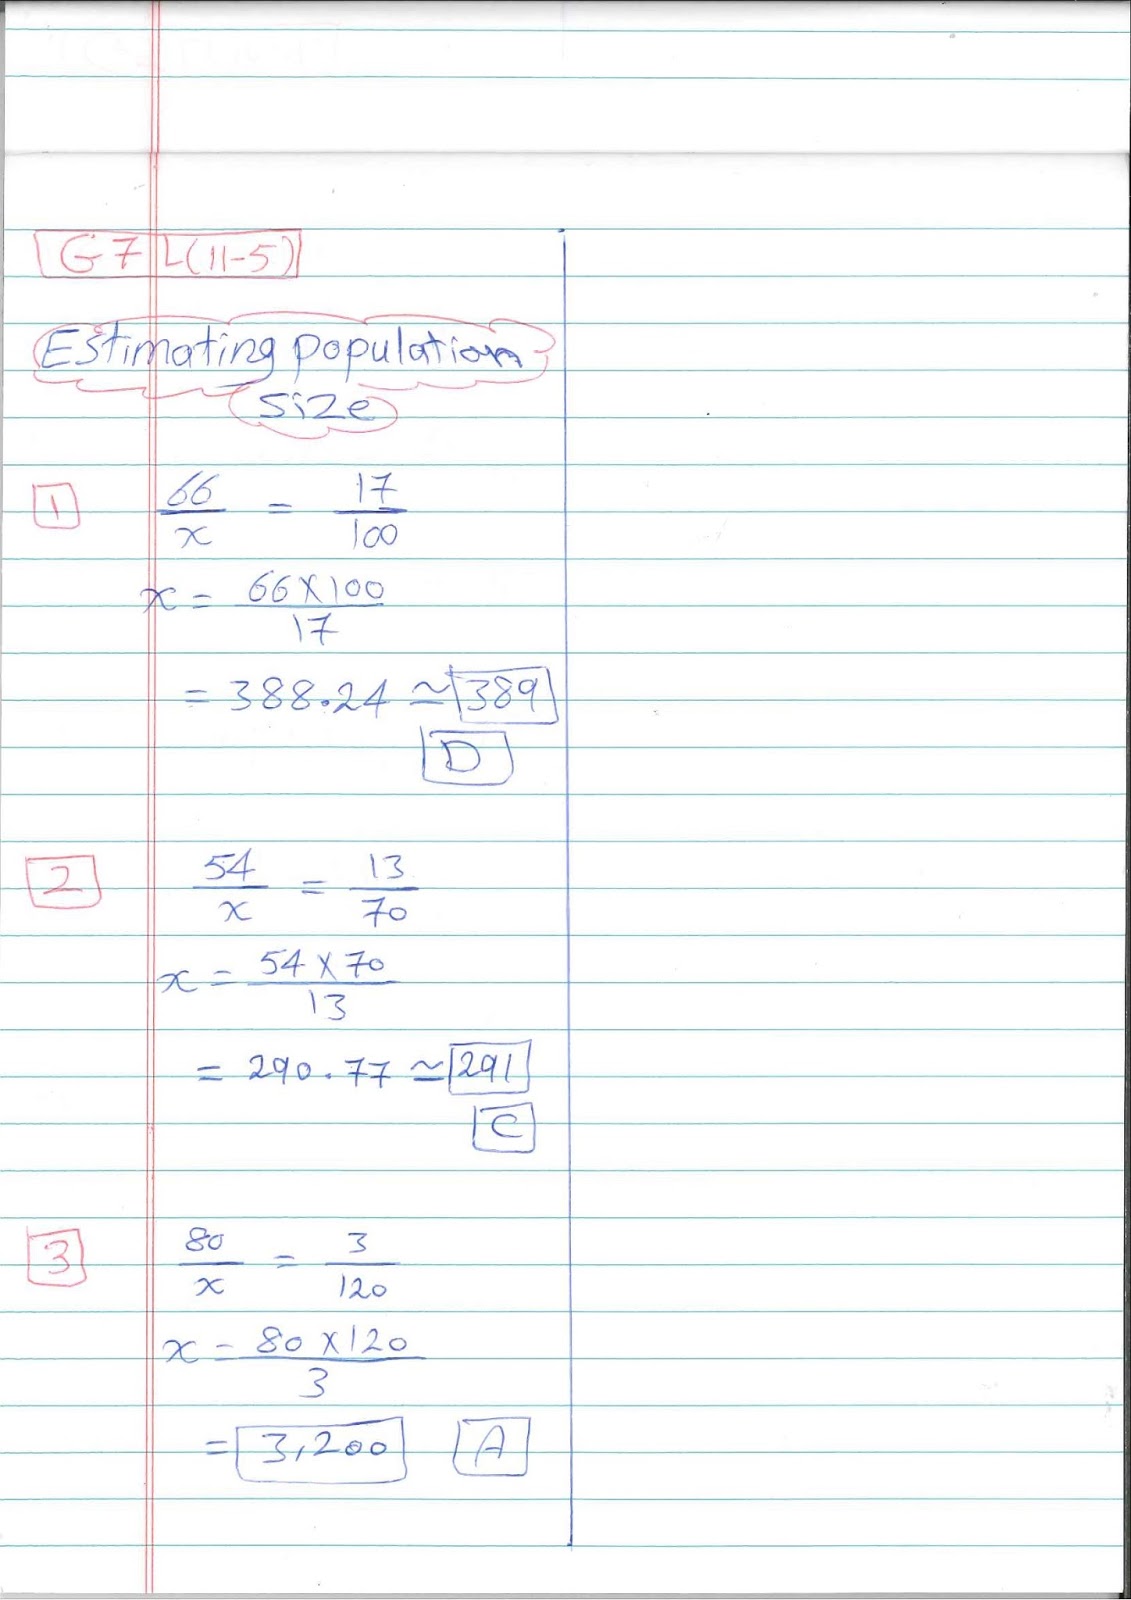 G7 L(11-5)
Estimating population
size
1 66/x = 17/100
x = 66×100/17
= 388.24 ≃ 389
D
2 54/x = 13/70
x = 54×70/13
= 290.77 ≃ 291
C
3 80/x = 3/120
x = 80×120/3
= 3,200 A